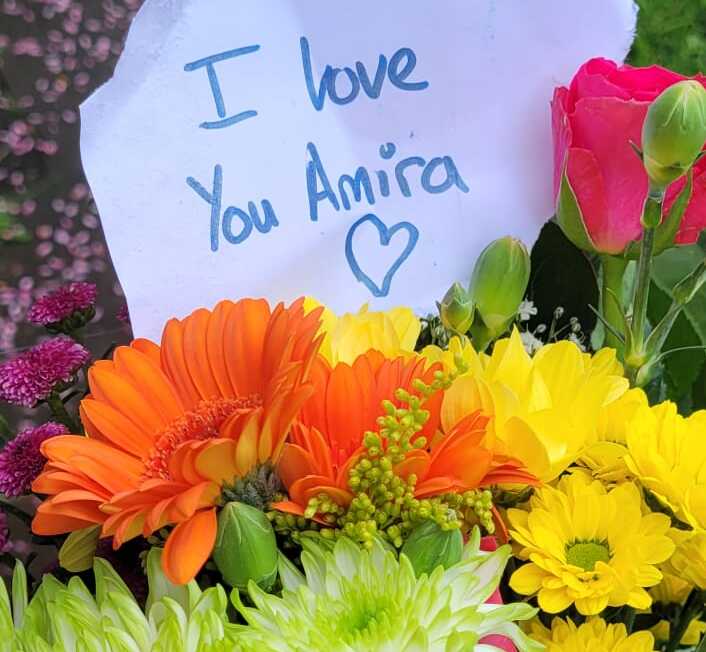 I love
You Amira
♡